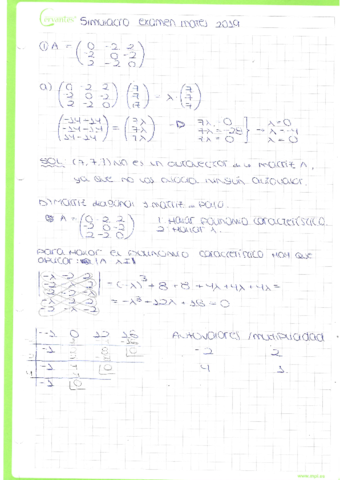 Simulacro examen mates 2019
① A = ( 0 -2 2
-2 0 -2
2 -2 0 )
a) ( 0 -2 2
-2 0 -2
2 -2 0 ) ( 7
7
7 ) = λ · ( 7
7
7 )
( 7λ
7λ
7λ ) → 7λ = 0
7λ = -28
7λ = 0 } → λ = 0
λ = -4
λ = 0
SOL (7,7,7) no es un autovector de la matriz A,
ya que no los asocia ningún autovalor.
b) Matriz diagonal y matriz de paso.
A = ( 0 -2 2
-2 0 -2
2 -2 0 )
1. Hallar polinomio característico
2. Hallar λ
Para hallar el polinomio característico hay que
aplicar: |A - λI|
= (-λ)³ + 8 + 8 + 4λ + 4λ + 4λ =
Autovalores / multiplicidad
-2 2
4 1